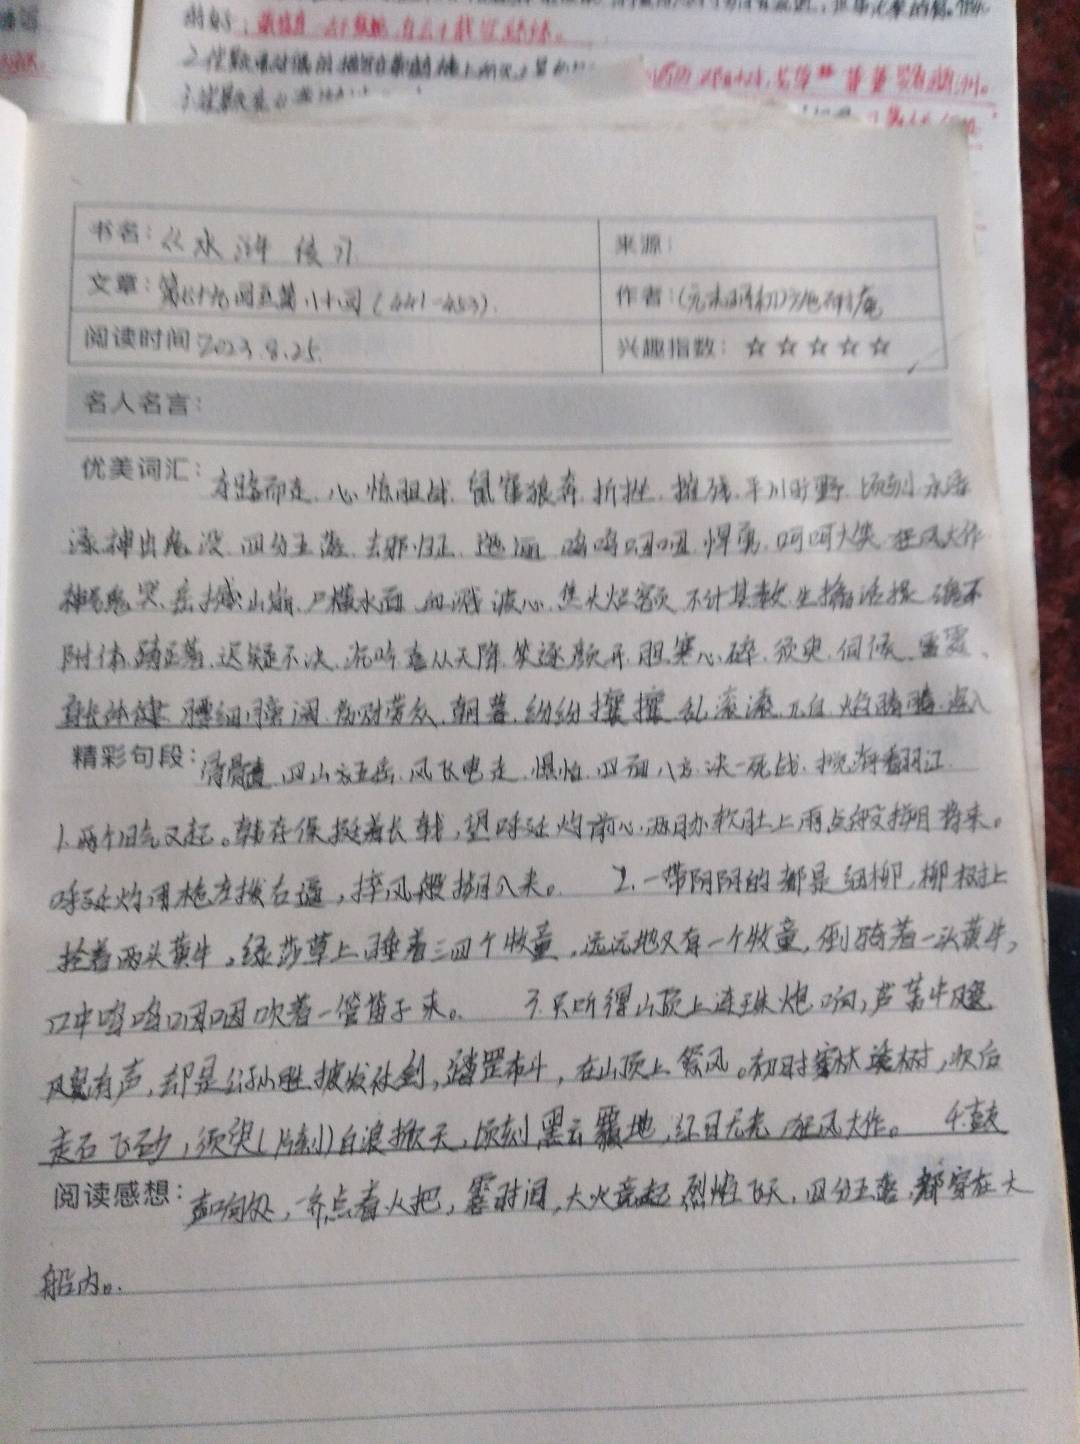 书名：《水浒传》
来源：
文章：第七十九回至第八十回（441-453）.
作者：（元末明初）施耐庵
阅读时间 2023.8.25
兴趣指数：☆☆☆☆☆
名人名言：
优美词汇：夺路而走.心惊胆战.鼠窜狼奔.折挫.摧残.平川旷野.顷刻.水
神出鬼没.四分五落.去邪归正.迤逦.呜呜咽咽.悍勇.呵呵大笑.狂风大作
神号鬼哭.岳撼山崩.尸横水面.血溅波心.焦头烂额.不计其数.生擒活捉.魂不
附体.迟疑不决.沉吟.喜从天降.笑逐颜开.胆寒心碎.须臾.伺候.
身长体健.腰细膀阔.劳众.朝暮.纷纷攘攘.乱滚滚.焰腾腾.深入
精彩句段：骨髓.四山五岳.风飞电走.惧怕.四面八方.决一死战.搅海翻江.
1.两个回合又起。韩存保挺着长戟，望呼延灼前心两肋软肚上雨点般搠将来。
呼延灼用枪左拨右逼，捽风般搠入来。 2.一带阴阴的都是细柳，柳树上
拴着两头黄牛，绿莎草上睡着三四个牧童，远远地又有一个牧童，倒骑着一头黄牛，
口中呜呜咽咽吹着一管笛子来。 3.只听得山顶上连珠炮响，芦苇中飕
飕有声，却是公孙胜披发仗剑，踏罡布斗，在山顶上祭风。初时穿林透树，次后
走石飞砂，须臾（片刻）白浪掀天，顷刻黑云覆地，红日无光，狂风大作。 4.鼓
阅读感想：声响处，齐点着火把，霎时间，大火竞起，烈焰飞天，四分五落，都穿在大
船内。